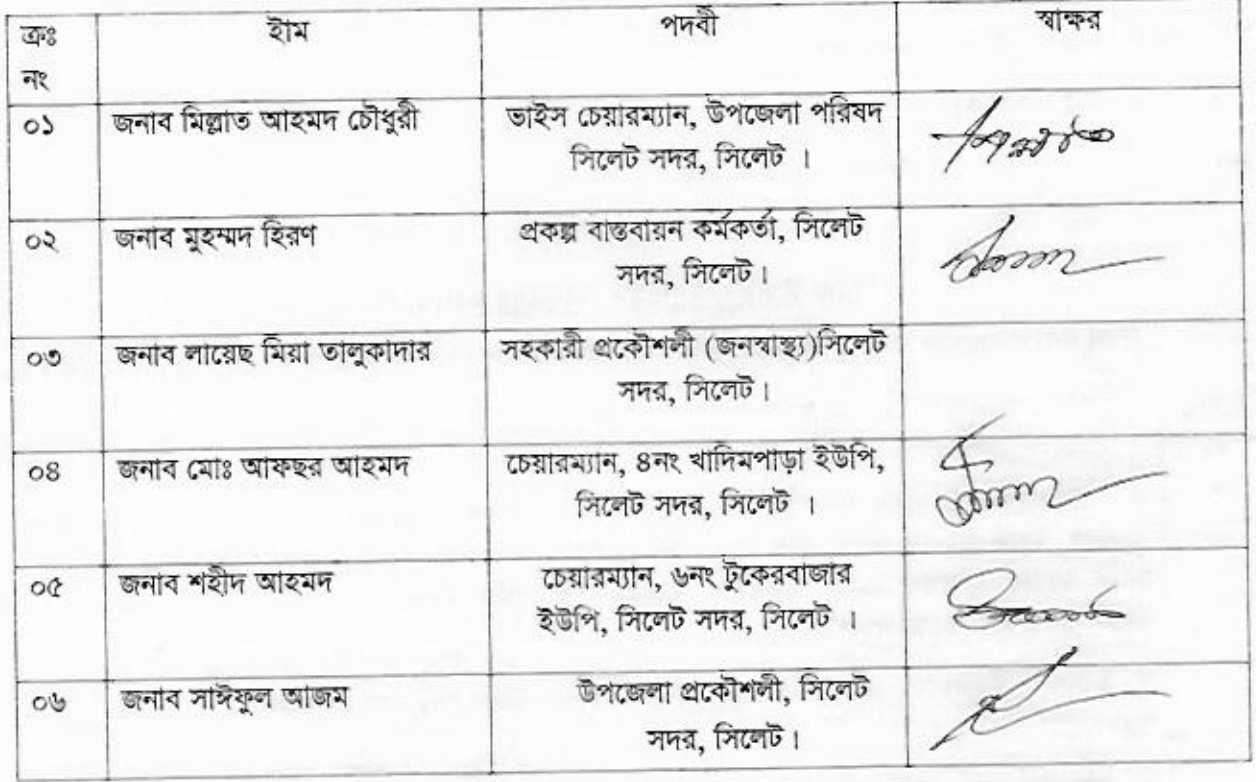 ক্রঃ নাম পদবী স্বাক্ষর
নং
০১ জনাব মিল্লাত আহমদ চৌধুরী ভাইস চেয়ারম্যান, উপজেলা পরিষদ
সিলেট সদর, সিলেট ।
০২ জনাব মুহম্মদ হিরণ প্রকল্প বাস্তবায়ন কর্মকর্তা, সিলেট
সদর, সিলেট।
০৩ জনাব লায়েছ মিয়া তালুকাদার সহকারী প্রকৌশলী (জনস্বাস্থ্য)সিলেট
সদর, সিলেট।
০৪ জনাব মোঃ আফছর আহমদ চেয়ারম্যান, ৪নং খাদিমপাড়া ইউপি,
সিলেট সদর, সিলেট ।
০৫ জনাব শহীদ আহমদ চেয়ারম্যান, ৬নং টুকেরবাজার
ইউপি, সিলেট সদর, সিলেট ।
০৬ জনাব সাঈফুল আজম উপজেলা প্রকৌশলী, সিলেট
সদর, সিলেট।